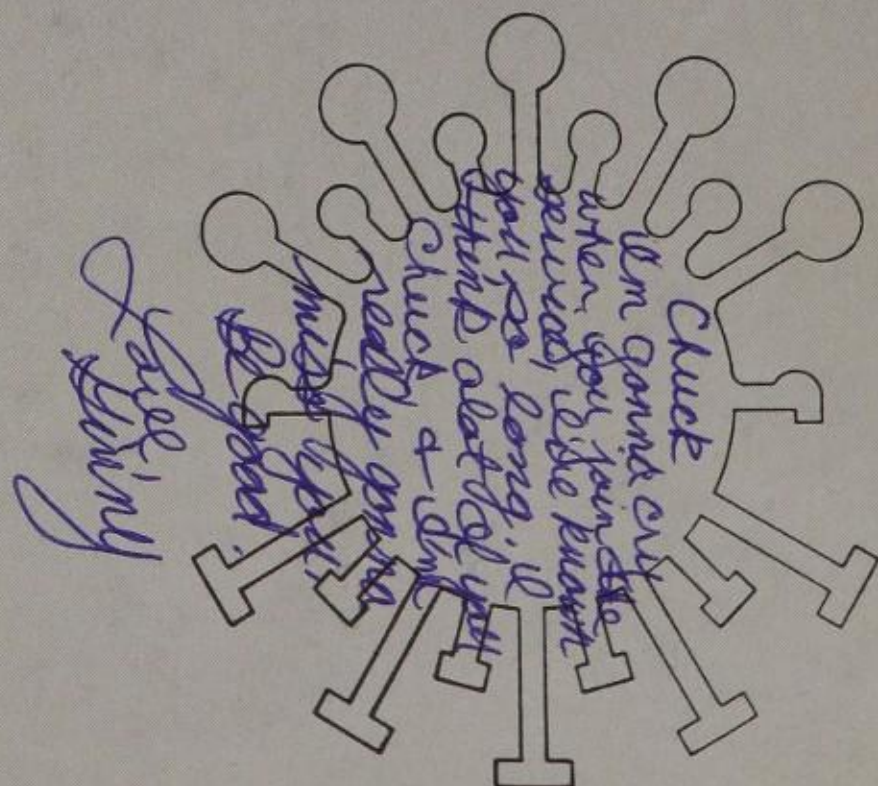 Chuck
I'm gonna cry
when you join the
service, I've known
you so long, I
think alot of you
Chuck & I'm
really gonna
miss you.
Be good.
Love,
Ginny